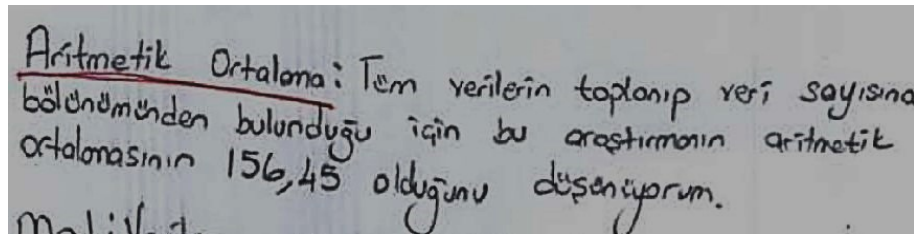 Aritmetik Ortalama: Tüm verilerin toplanıp veri sayısına
bölünümünden bulunduğu için bu araştırmanın aritmetik
ortalamasının 156,45 olduğunu düşünüyorum.